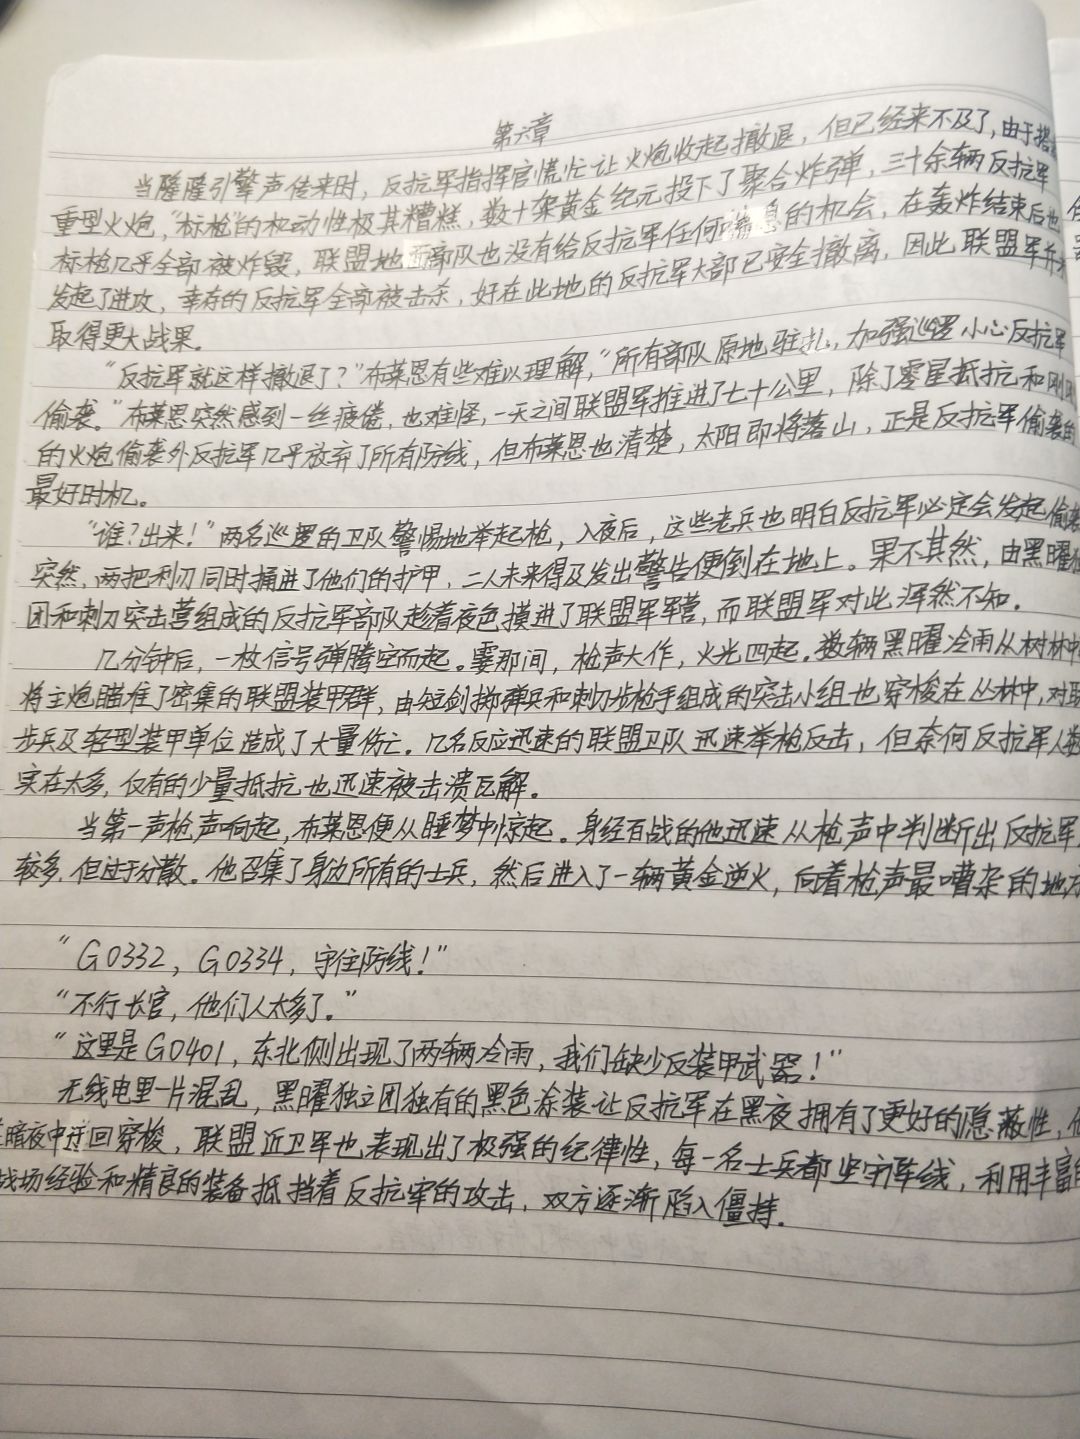 第六章
当隆隆引擎声传来时，反抗军指挥官慌忙让火炮收起撤退，但已经来不及了，由于搭
重型火炮，“标枪”的机动性极其糟糕，数十架黄金纪元投下了聚合炸弹，三十余辆反抗军
标枪几乎全部被炸毁，联盟地面部队也没有给反抗军任何喘息的机会，在轰炸结束后也
发起了进攻，幸存的反抗军全部被击杀，好在此地的反抗军大部已安全撤离，因此联盟军并
取得更大战果。
“反抗军就这样撤退了？”布莱恩有些难以理解，“所有部队原地驻扎，加强巡逻小心反抗军
偷袭。”布莱恩突然感到一丝疲倦，也难怪，一天之间联盟军推进了七十公里，除了零星抵抗和刚
的火炮偷袭外反抗军几乎放弃了所有防线，但布莱恩也清楚，太阳即将落山，正是反抗军偷袭的
最好时机。
“谁？出来！”两名巡逻的卫队警惕地举起枪，入夜后，这些老兵也明白反抗军必定会发起偷袭
突然，两把利刃同时捅进了他们的护甲，二人未来得及发出警告便倒在地上。果不其然，由黑曜
团和刺刀突击营组成的反抗军部队趁着夜色摸进了联盟军军营，而联盟军对此浑然不知。
几分钟后，一枚信号弹腾空而起。霎那间，枪声大作，火光四起。数辆黑曜冷雨从树林中
将主炮瞄准了密集的联盟装甲群，由短剑掷弹兵和刺刀步枪手组成的突击小组也穿梭在丛林中，对联
步兵及轻型装甲单位造成了大量伤亡。几名反应迅速的联盟卫队迅速举枪反击，但奈何反抗军人数
实在太多，仅有的少量抵抗也迅速被击溃瓦解。
当第一声枪声响起，布莱恩便从睡梦中惊起。身经百战的他迅速从枪声中判断出反抗军
较多，但过于分散。他召集了身边所有的士兵，然后进入了一辆黄金逆火，向着枪声最嘈杂的地方
“G0332，G0334，守住防线！”
“不行长官，他们人太多了。”
“这里是G0401，东北侧出现了两辆冷雨，我们缺少反装甲武器！”
无线电里一片混乱，黑曜独立团独有的黑色涂装让反抗军在黑夜拥有了更好的隐蔽性，
暗夜中迂回穿梭，联盟近卫军也表现出了极强的纪律性，每一名士兵都坚守阵线，利用丰富的
战场经验和精良的装备抵挡着反抗军的攻击，双方逐渐陷入僵持。